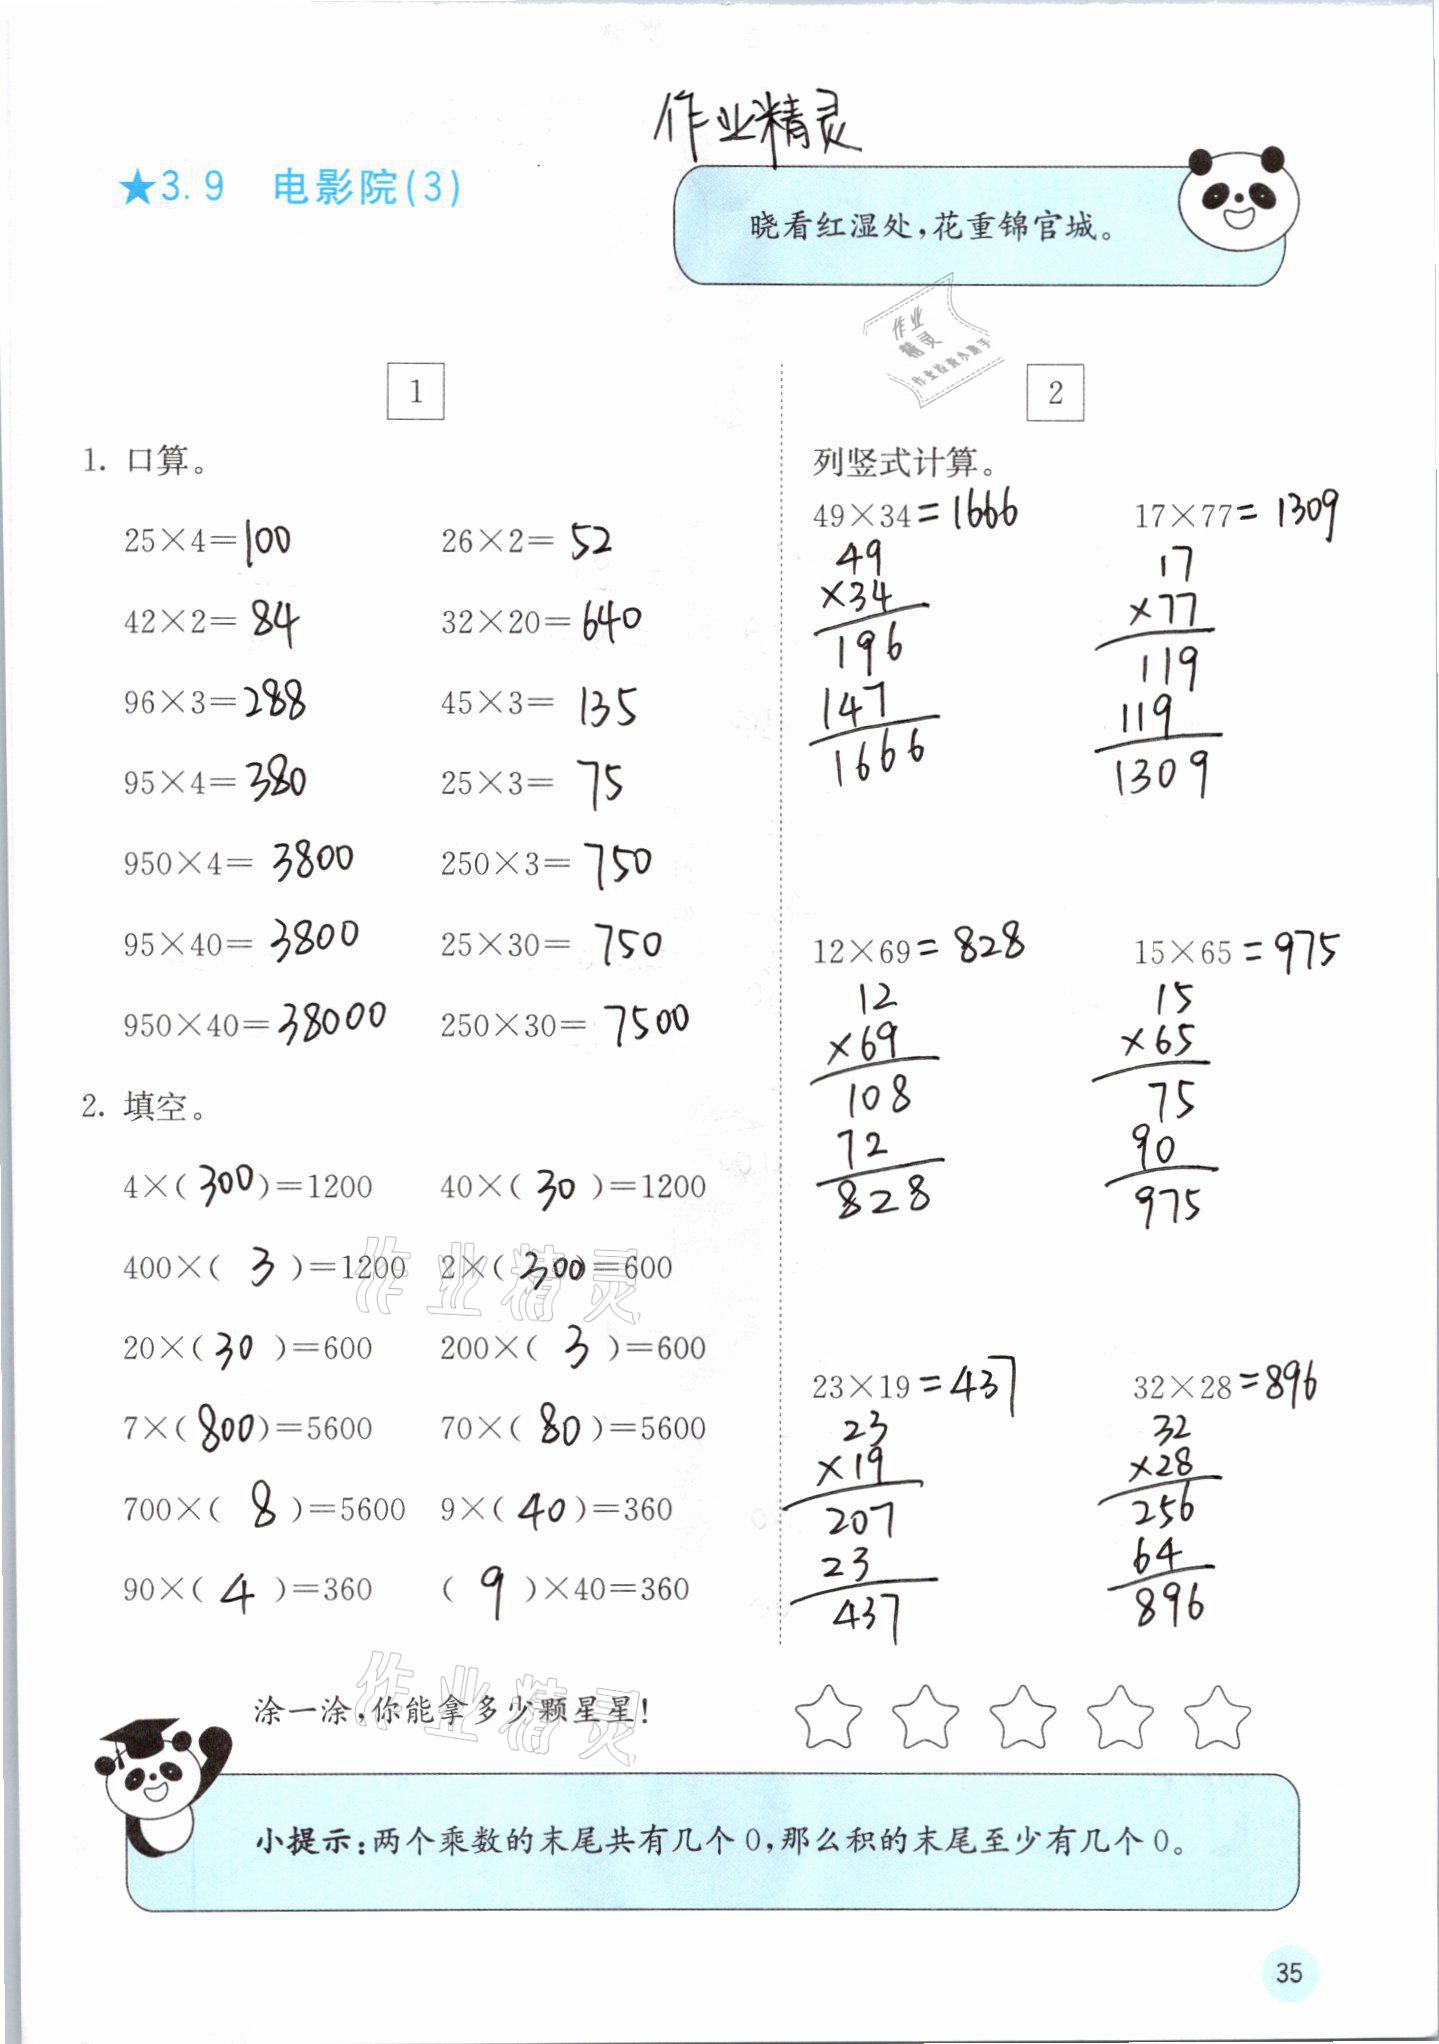 作业精灵
★3.9 电影院(3)
晓看红湿处,花重锦官城。
作业
精灵
作业检查小助手
1
1. 口算。
25×4=100 26×2=52
42×2=84 32×20=640
96×3=288 45×3=135
95×4=380 25×3=75
950×4=3800 250×3=750
95×40=3800 25×30=750
950×40=38000 250×30=7500
2. 填空。
4×(300)=1200 40×(30)=1200
400×(3)=1200 2×(300)=600
20×(30)=600 200×(3)=600
7×(800)=5600 70×(80)=5600
700×(8)=5600 9×(40)=360
90×(4)=360 (9)×40=360
作业精灵
2
列竖式计算。
49×34=1666 17×77=1309
49 17
×34 ×77
196 119
147 119
1666 1309
12×69=828 15×65=975
12 15
×69 ×65
108 75
72 90
828 975
23×19=437 32×28=896
23 32
×19 ×28
207 256
23 64
437 896
作业精灵
涂一涂,你能拿多少颗星星!
小提示:两个乘数的末尾共有几个0,那么积的末尾至少有几个0。
35